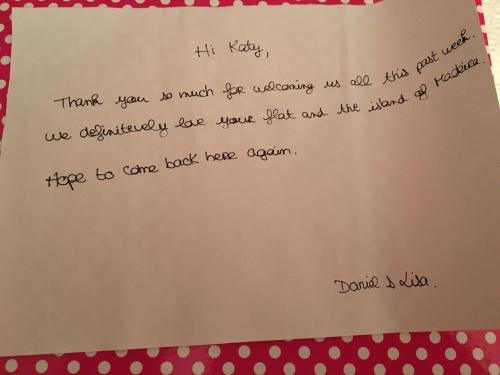 Hi Katy,
Thank you so much for welcoming us all this past week.
We definitevely love your flat and the island of Madeira.
Hope to come back here again.
Daniel & Lisa.